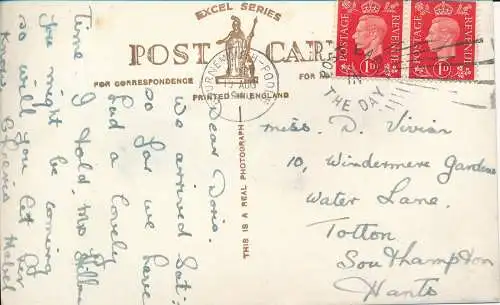 EXCEL SERIES
POST CARD
FOR CORRESPONDENCE
PRINTED IN ENGLAND
THIS IS A REAL PHOTOGRAPH
POSTAGE REVENUE
1D
POSTAGE REVENUE
1D
IN
THE DAY
Dear Doris.
We arrived Sat:
so far we have
had a lovely
time I told Mrs
you might be coming
so will you let her
know
Mabel
Miss. D. Vivian
10, Windermere Gardens
Water Lane.
Totton
Southampton
Hants